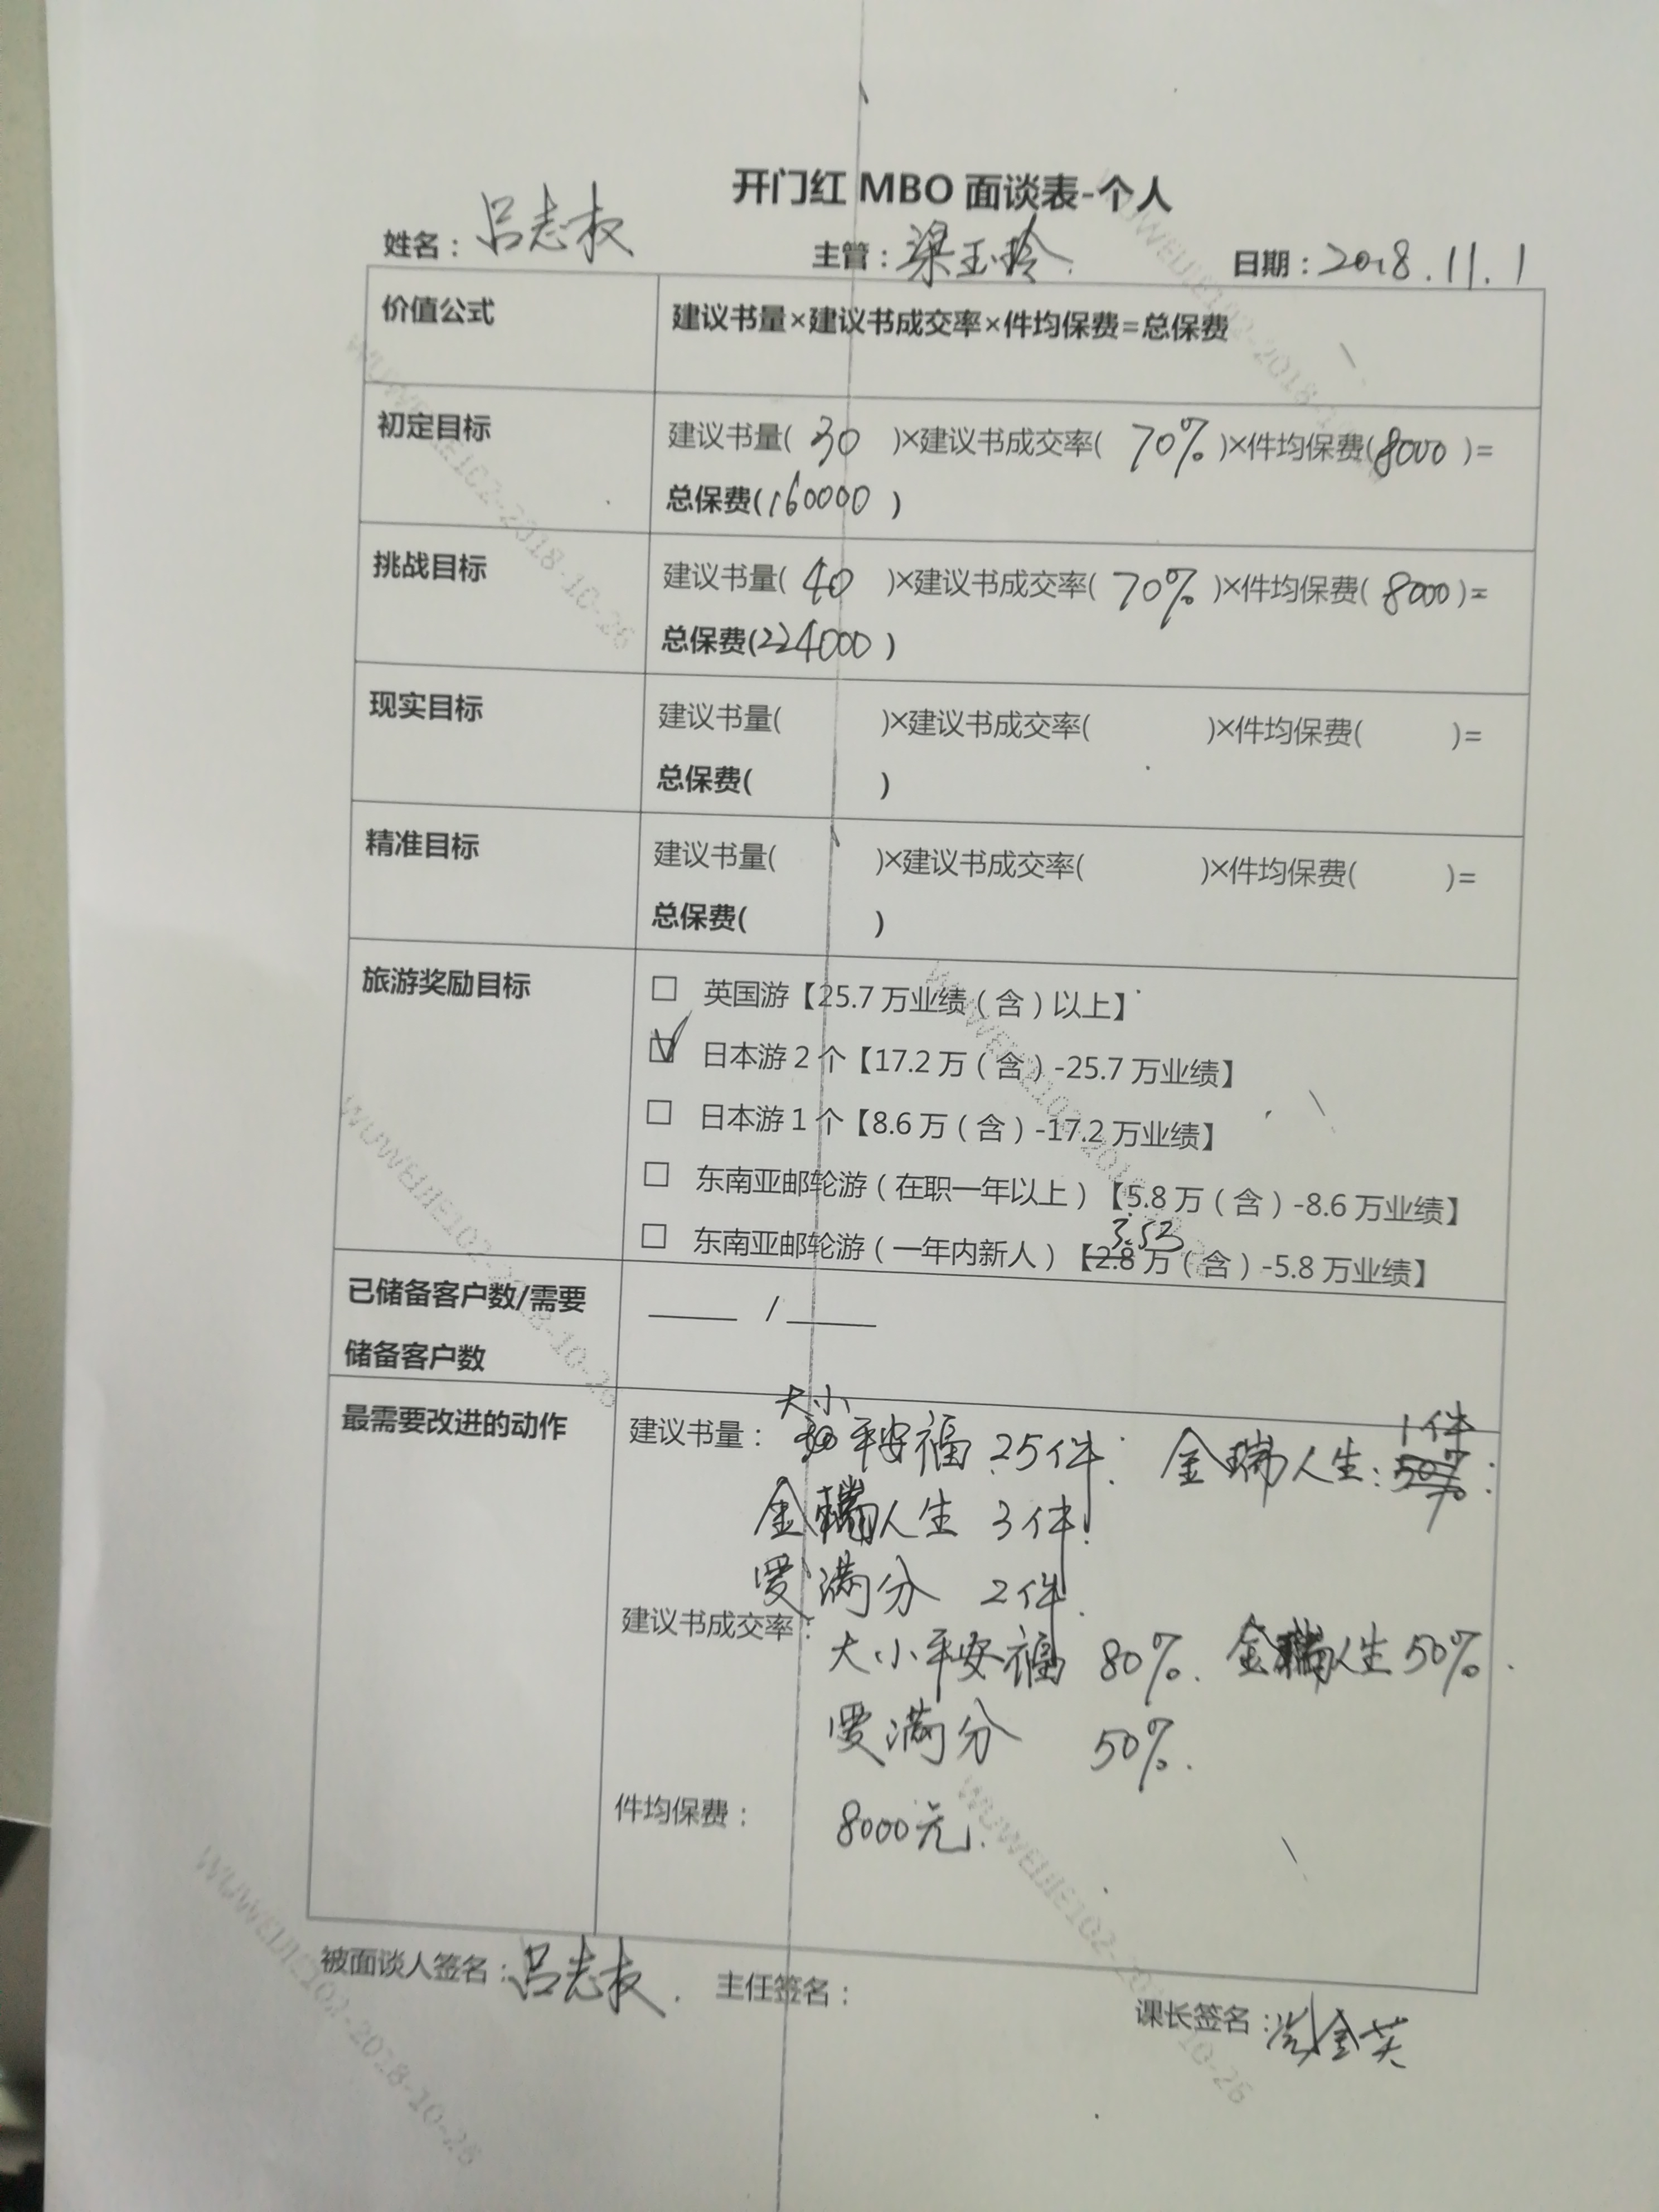 开门红 MBO 面谈表-个人
姓名：吕志权 主管：梁玉玲 日期：2018.11.1
价值公式 建议书量×建议书成交率×件均保费=总保费
初定目标 建议书量( 30 )×建议书成交率( 70% )×件均保费(8000 )=
总保费(160000 )
挑战目标 建议书量( 40 )×建议书成交率( 70% )×件均保费( 8000 )=
总保费(224000 )
现实目标 建议书量( )×建议书成交率( )×件均保费( )=
总保费( )
精准目标 建议书量( )×建议书成交率( )×件均保费( )=
总保费( )
旅游奖励目标 □ 英国游【25.7 万业绩（含）以上】
☑ 日本游 2 个【17.2 万（含）-25.7 万业绩】
□ 日本游 1 个【8.6 万（含）-17.2 万业绩】
□ 东南亚邮轮游（在职一年以上）【5.8 万（含）-8.6 万业绩】
3.53
□ 东南亚邮轮游（一年内新人）【2.8 万（含）-5.8 万业绩】
已储备客户数/需要 /
储备客户数
最需要改进的动作 大小 1件
建议书量： 平安福 25件 金瑞人生：50%
金瑞人生 3件
满分 2件
建议书成交率：
大小平安福 80%. 金瑞人生 50%.
满分 50%.
件均保费： 8000元.
被面谈人签名：吕志权. 主任签名：
课长签名： 金英
WUWEIJIE102-2018-10-26
WUWEIJIE102-2018-10-26
WUWEIJIE102-2018-10-26
WUWEIJIE102-2018-10-26